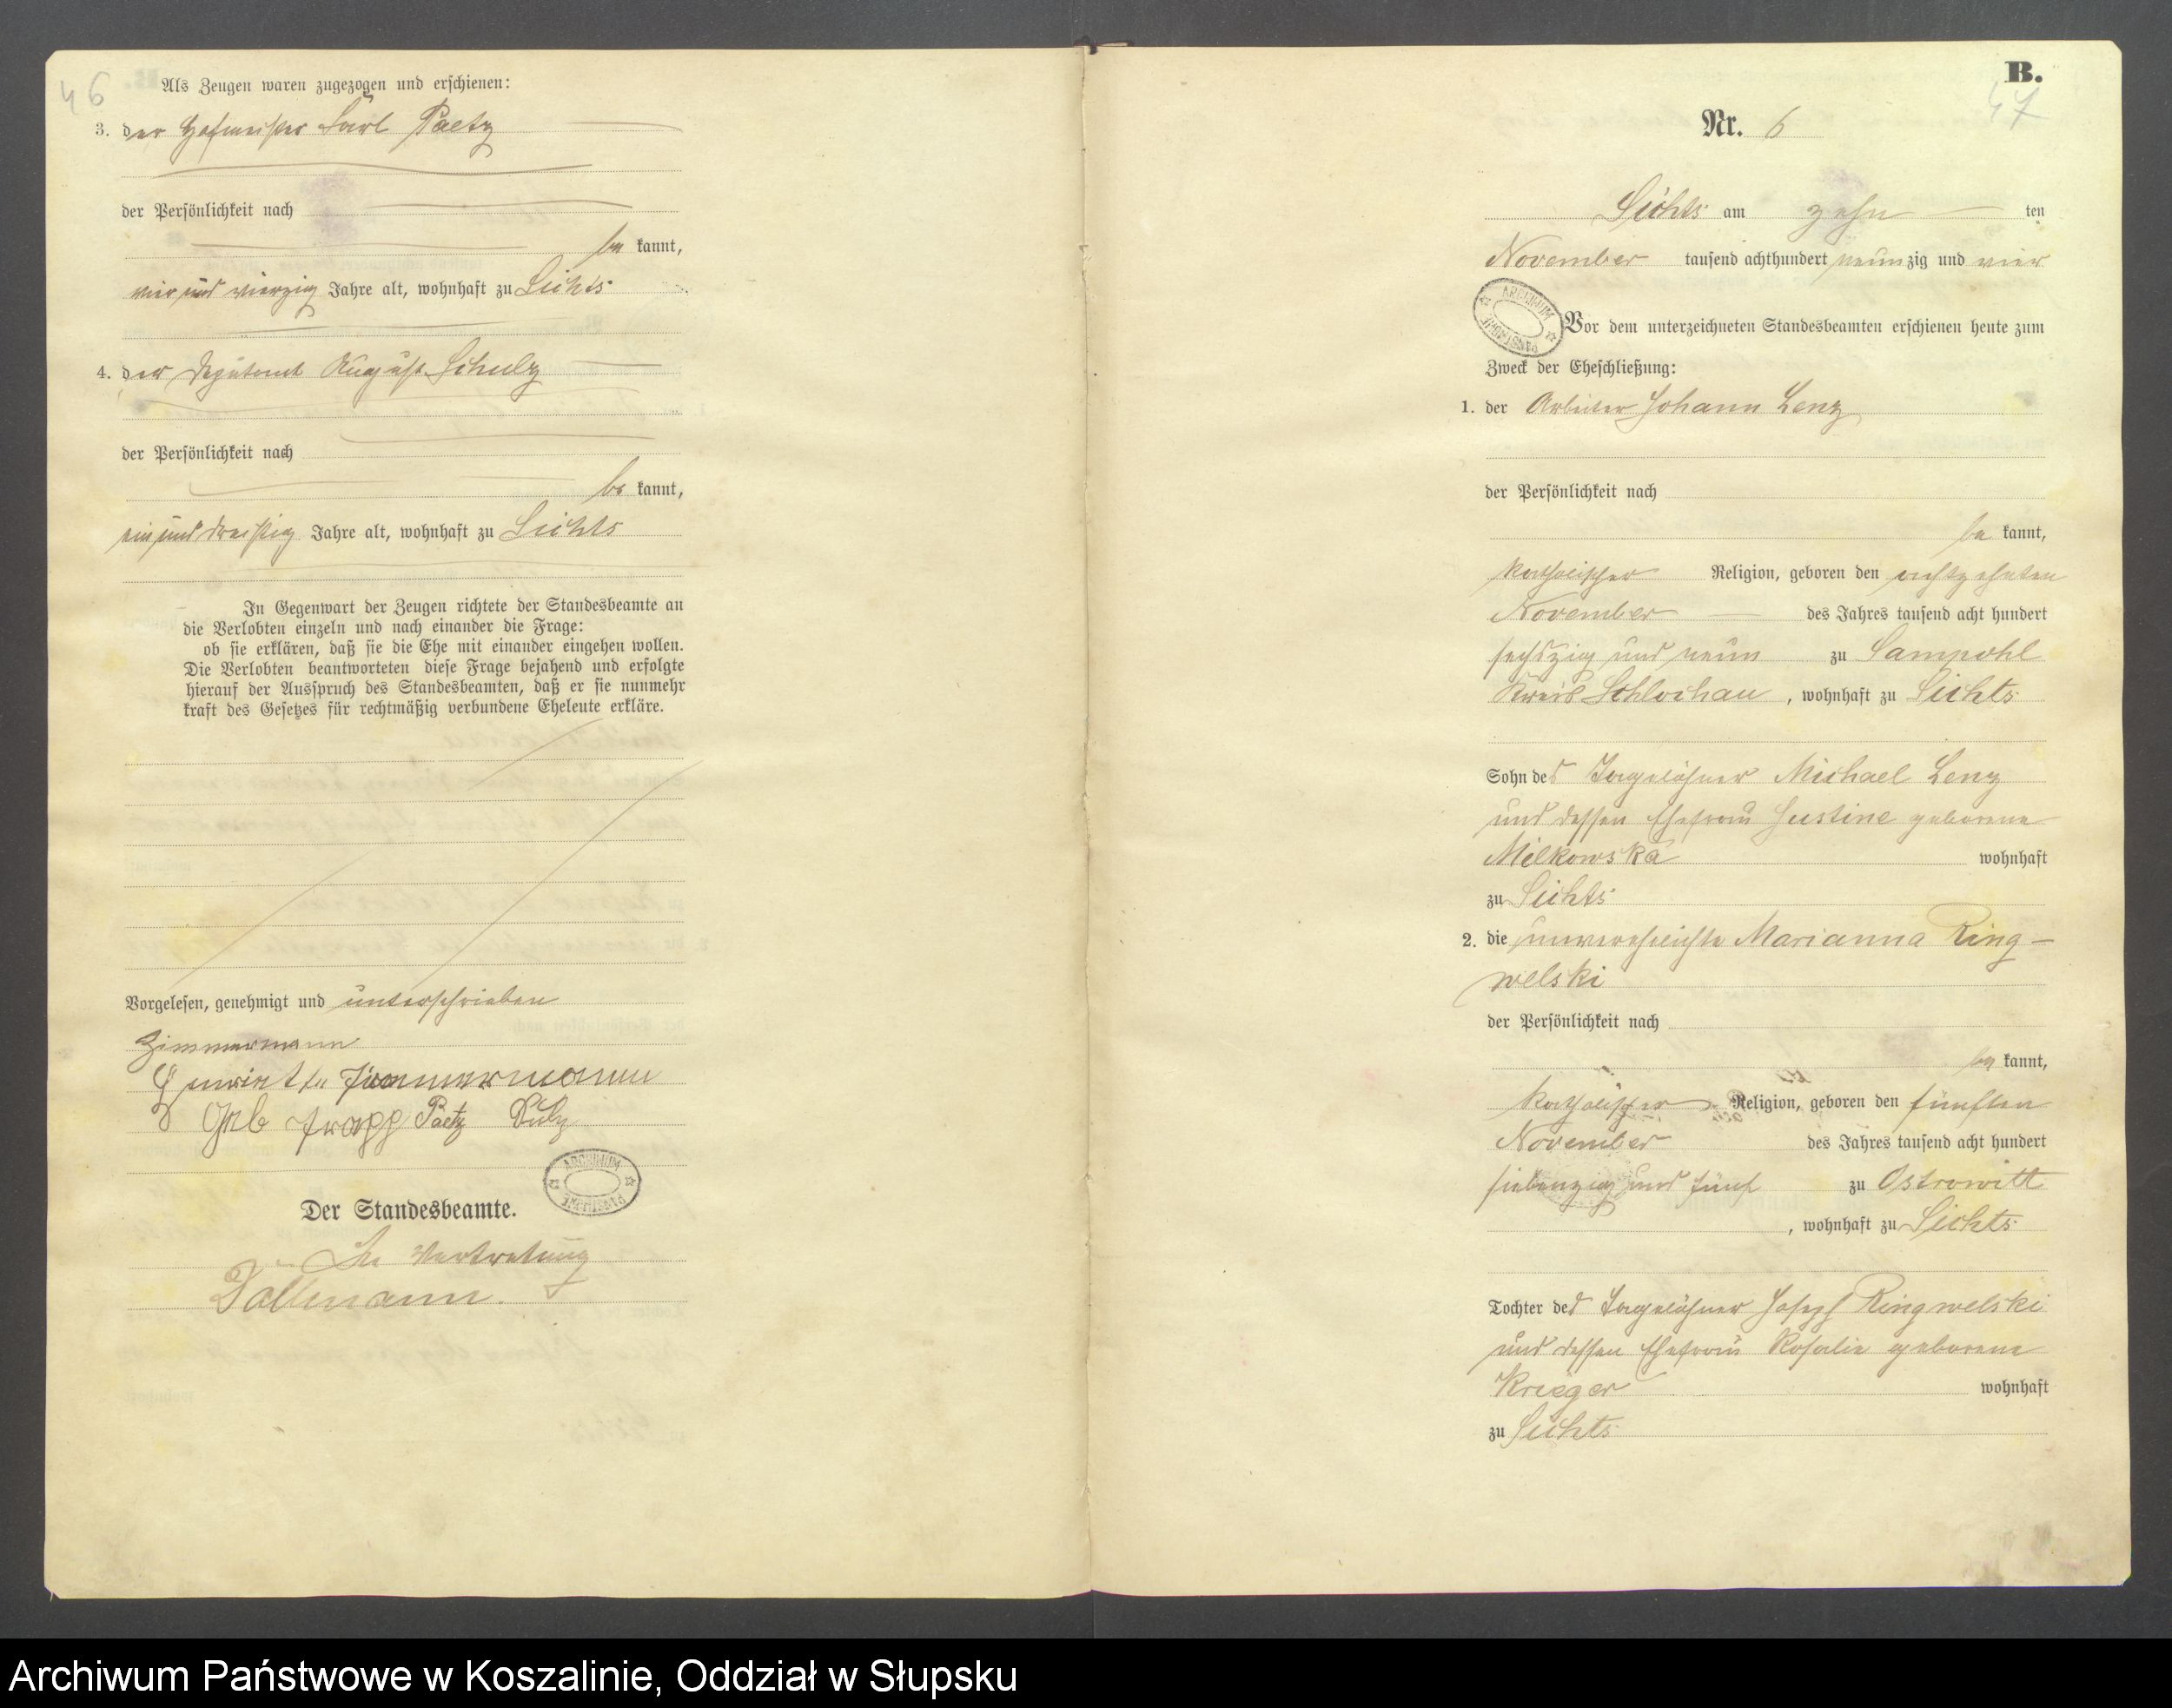 46
Als Zeugen waren zugezogen und erschienen:
3. der Hofmeister Carl Paetz
der Persönlichkeit nach
be kannt,
vier und vierzig Jahre alt, wohnhaft zu Lichts
4. der Deputant August Schulz
der Persönlichkeit nach
be kannt,
ein und dreißig Jahre alt, wohnhaft zu Lichts
In Gegenwart der Zeugen richtete der Standesbeamte an
die Verlobten einzeln und nach einander die Frage:
ob sie erklären, daß sie die Ehe mit einander eingehen wollen.
Die Verlobten beantworteten diese Frage bejahend und erfolgte
hierauf der Ausspruch des Standesbeamten, daß er sie nunmehr
kraft des Gesetzes für rechtmäßig verbundene Eheleute erkläre.
Vorgelesen, genehmigt und unterschrieben
Zimmermann
Zimmermann
Grb Trapp Paetz
ARCHIWUM PAŃSTWOWE
Der Standesbeamte.
In Vertretung
B.
47
Nr. 6
Lichts am zehn ten
November tausend achthundert neun zig und vier
ARCHIWUM PAŃSTWOWE
Vor dem unterzeichneten Standesbeamten erschienen heute zum
Zweck der Eheschließung:
1. der Arbeiter Johann Lenz
der Persönlichkeit nach
be kannt,
katholischer Religion, geboren den achtzehnten
November des Jahres tausend acht hundert
sechszig und neun zu Sampohl
Kreis Schlochau, wohnhaft zu Lichts
Sohn des Tagelöhner Michael Lenz
und dessen Ehefrau Justine geborene
Milkowska wohnhaft
zu Lichts
2. die unverehelichte Marianna Ring-
welski
der Persönlichkeit nach
be kannt,
katholischer Religion, geboren den fünften
November des Jahres tausend acht hundert
siebenzig und fünf zu Ostrowitt
, wohnhaft zu Lichts
Tochter des Tagelöhner Joseph Ringwelski
und dessen Ehefrau Rosalie geborene
Krieger wohnhaft
zu Lichts
Archiwum Państwowe w Koszalinie, Oddział w Słupsku